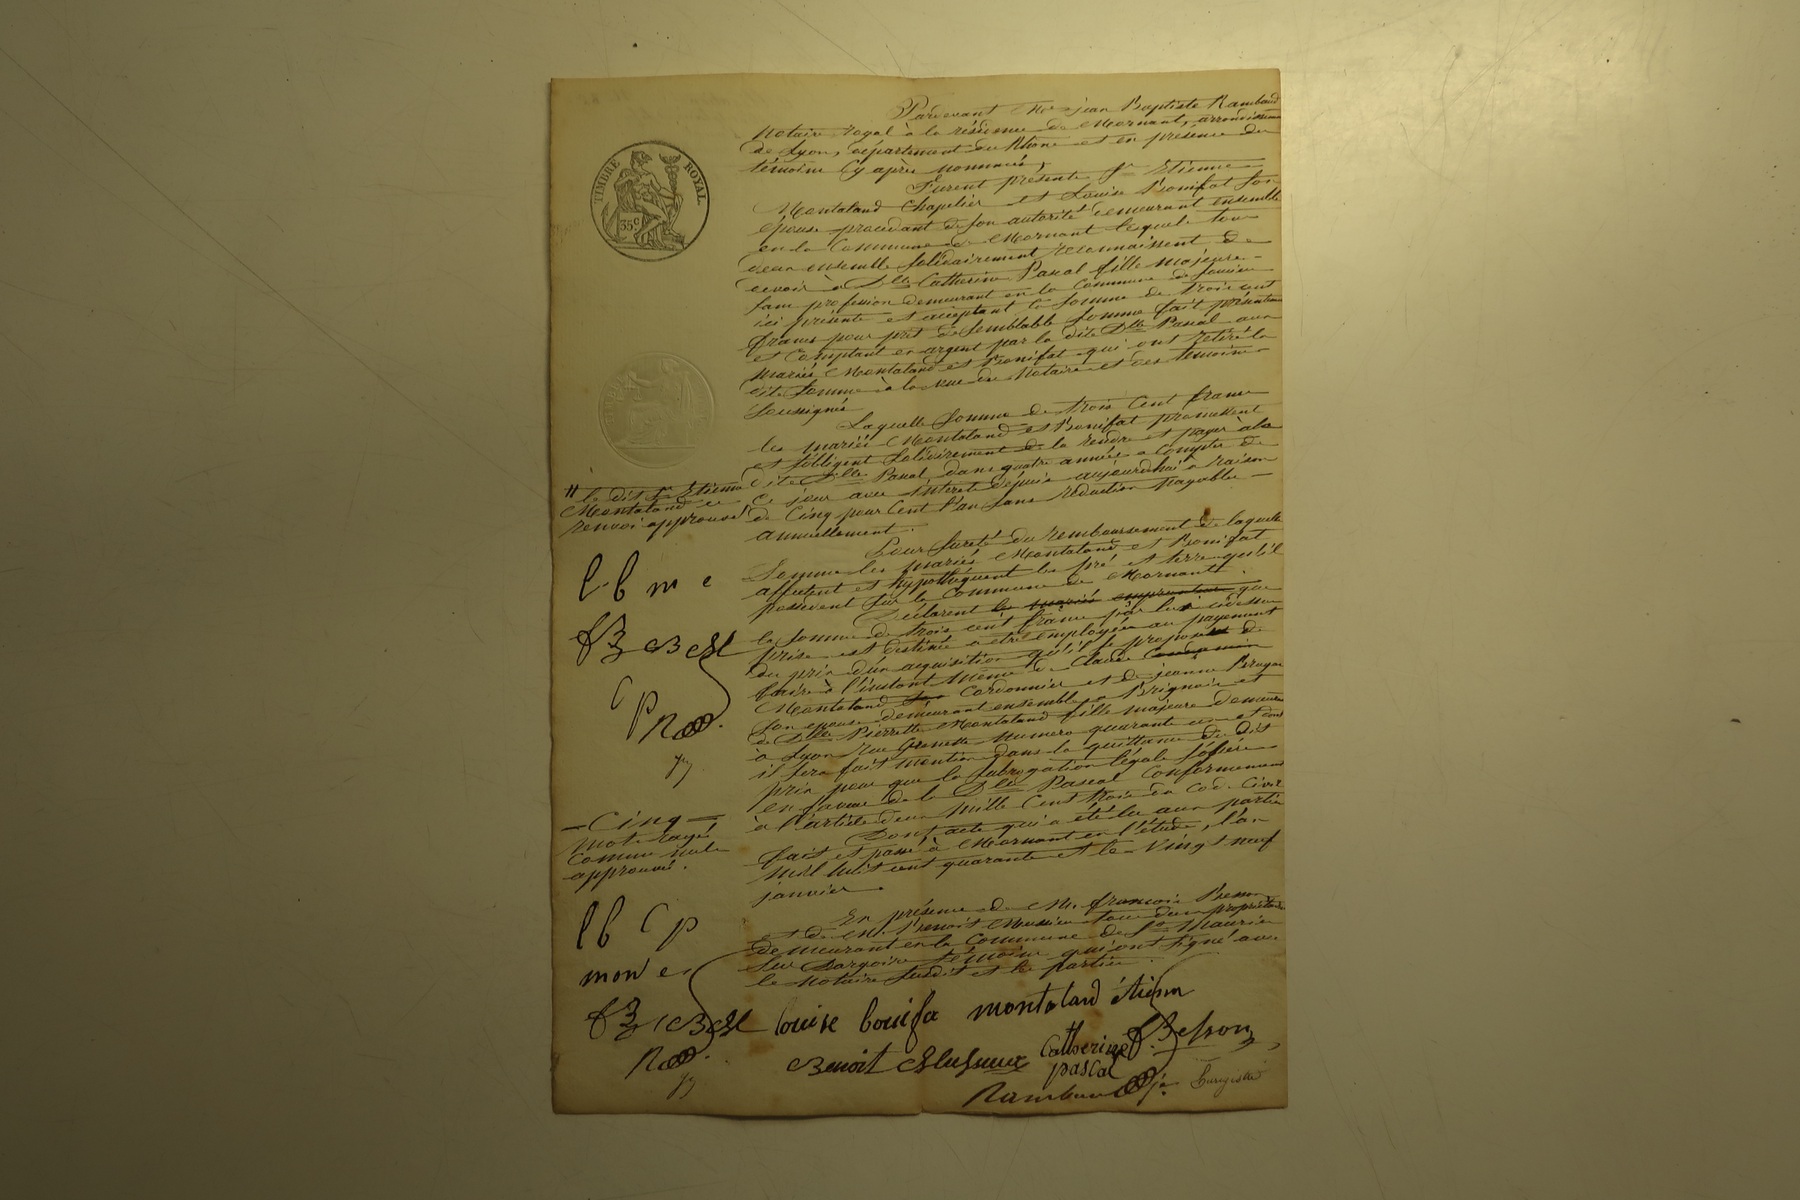 TIMBRE ROYAL
35 c
Pardevant Me jean Baptiste Rambaud
Notaire royal à la résidence de Mornant, arrondissement
de Lyon, département du Rhône et en présence des
témoins cy après nommés,
Furent présents sr Etienne
Montaland Chapelier et Louise Bonifat son
épouse procédant de son autorité demeurant ensemble
en la Commune de Mornant lesquels tous
deux ensemble solidairement reconnaissent de
devoir à Dlle Catherine Pascal fille majeure
sans profession demeurant en la Commune de
ici présente et acceptant la somme de trois cent
francs pour prêt de semblable somme fait présentement
et comptant en argent par la dite Dlle Pascal aux
mariés Montaland et Bonifat qui ont retiré la
dite somme à la vue du Notaire et des témoins
soussignés
Laquelle somme de trois cent francs
les mariés Montaland et Bonifat promettent
et s'obligent solidairement de la rendre et payer à la
dite Dlle Pascal dans quatre années à compter de
ce jour avec intérêt depuis aujourdhui à raison
de Cinq pour Cent l'an sans réduction payable
annuellement.
Pour sureté du remboursement de laquelle
somme les mariés Montaland et Bonifat
affectent et hypothèquent les pré et terre qu'il
possèdent sur la Commune de Mornant.
Déclarent les mariés emprunteurs que
la somme de trois cent francs par lui cidessus
prise est destinée a etre employée au payement
du prix d'un acquisition qu'il se propose de
faire à l'instant même de Claude
Montaland Cordonnier et de jeanne
son epouse demeurant ensemble a Brignais et
de Dlle Pierrette Montaland fille majeure demeurant
à Lyon rue Grenette Numero quarante et dont
il sera fait mention dans la quittance du dit
prix pour que la subrogation légale s'opère
en faveur de la Dlle Pascal Conformément
à l'article deux mille Cent trois du Cod. Civil
Dont acte qui a été lu aux parties
fait et passé à Mornant en l'étude, l'an
mil huit cent quarante et le vingt neuf
janvier.
En présence de M. françois Besson
et de M. Benoit Mussieux tous deux propriétaires
demeurant en la Commune de St Maurice
sur Dargoire témoins qui ont signé avec
le Notaire susdit et les parties.
// le dit sr Etienne
Montaland
renvoi approuvé
l b m e
f B B M
C P
R
= Cinq =
mots rayés
comme nuls
approuvé.
l b C p
mon e
f B B M
R
louise bonifa montaland étienn
Benoit Mussieux Catherine pascal f. Besson
Rambaud